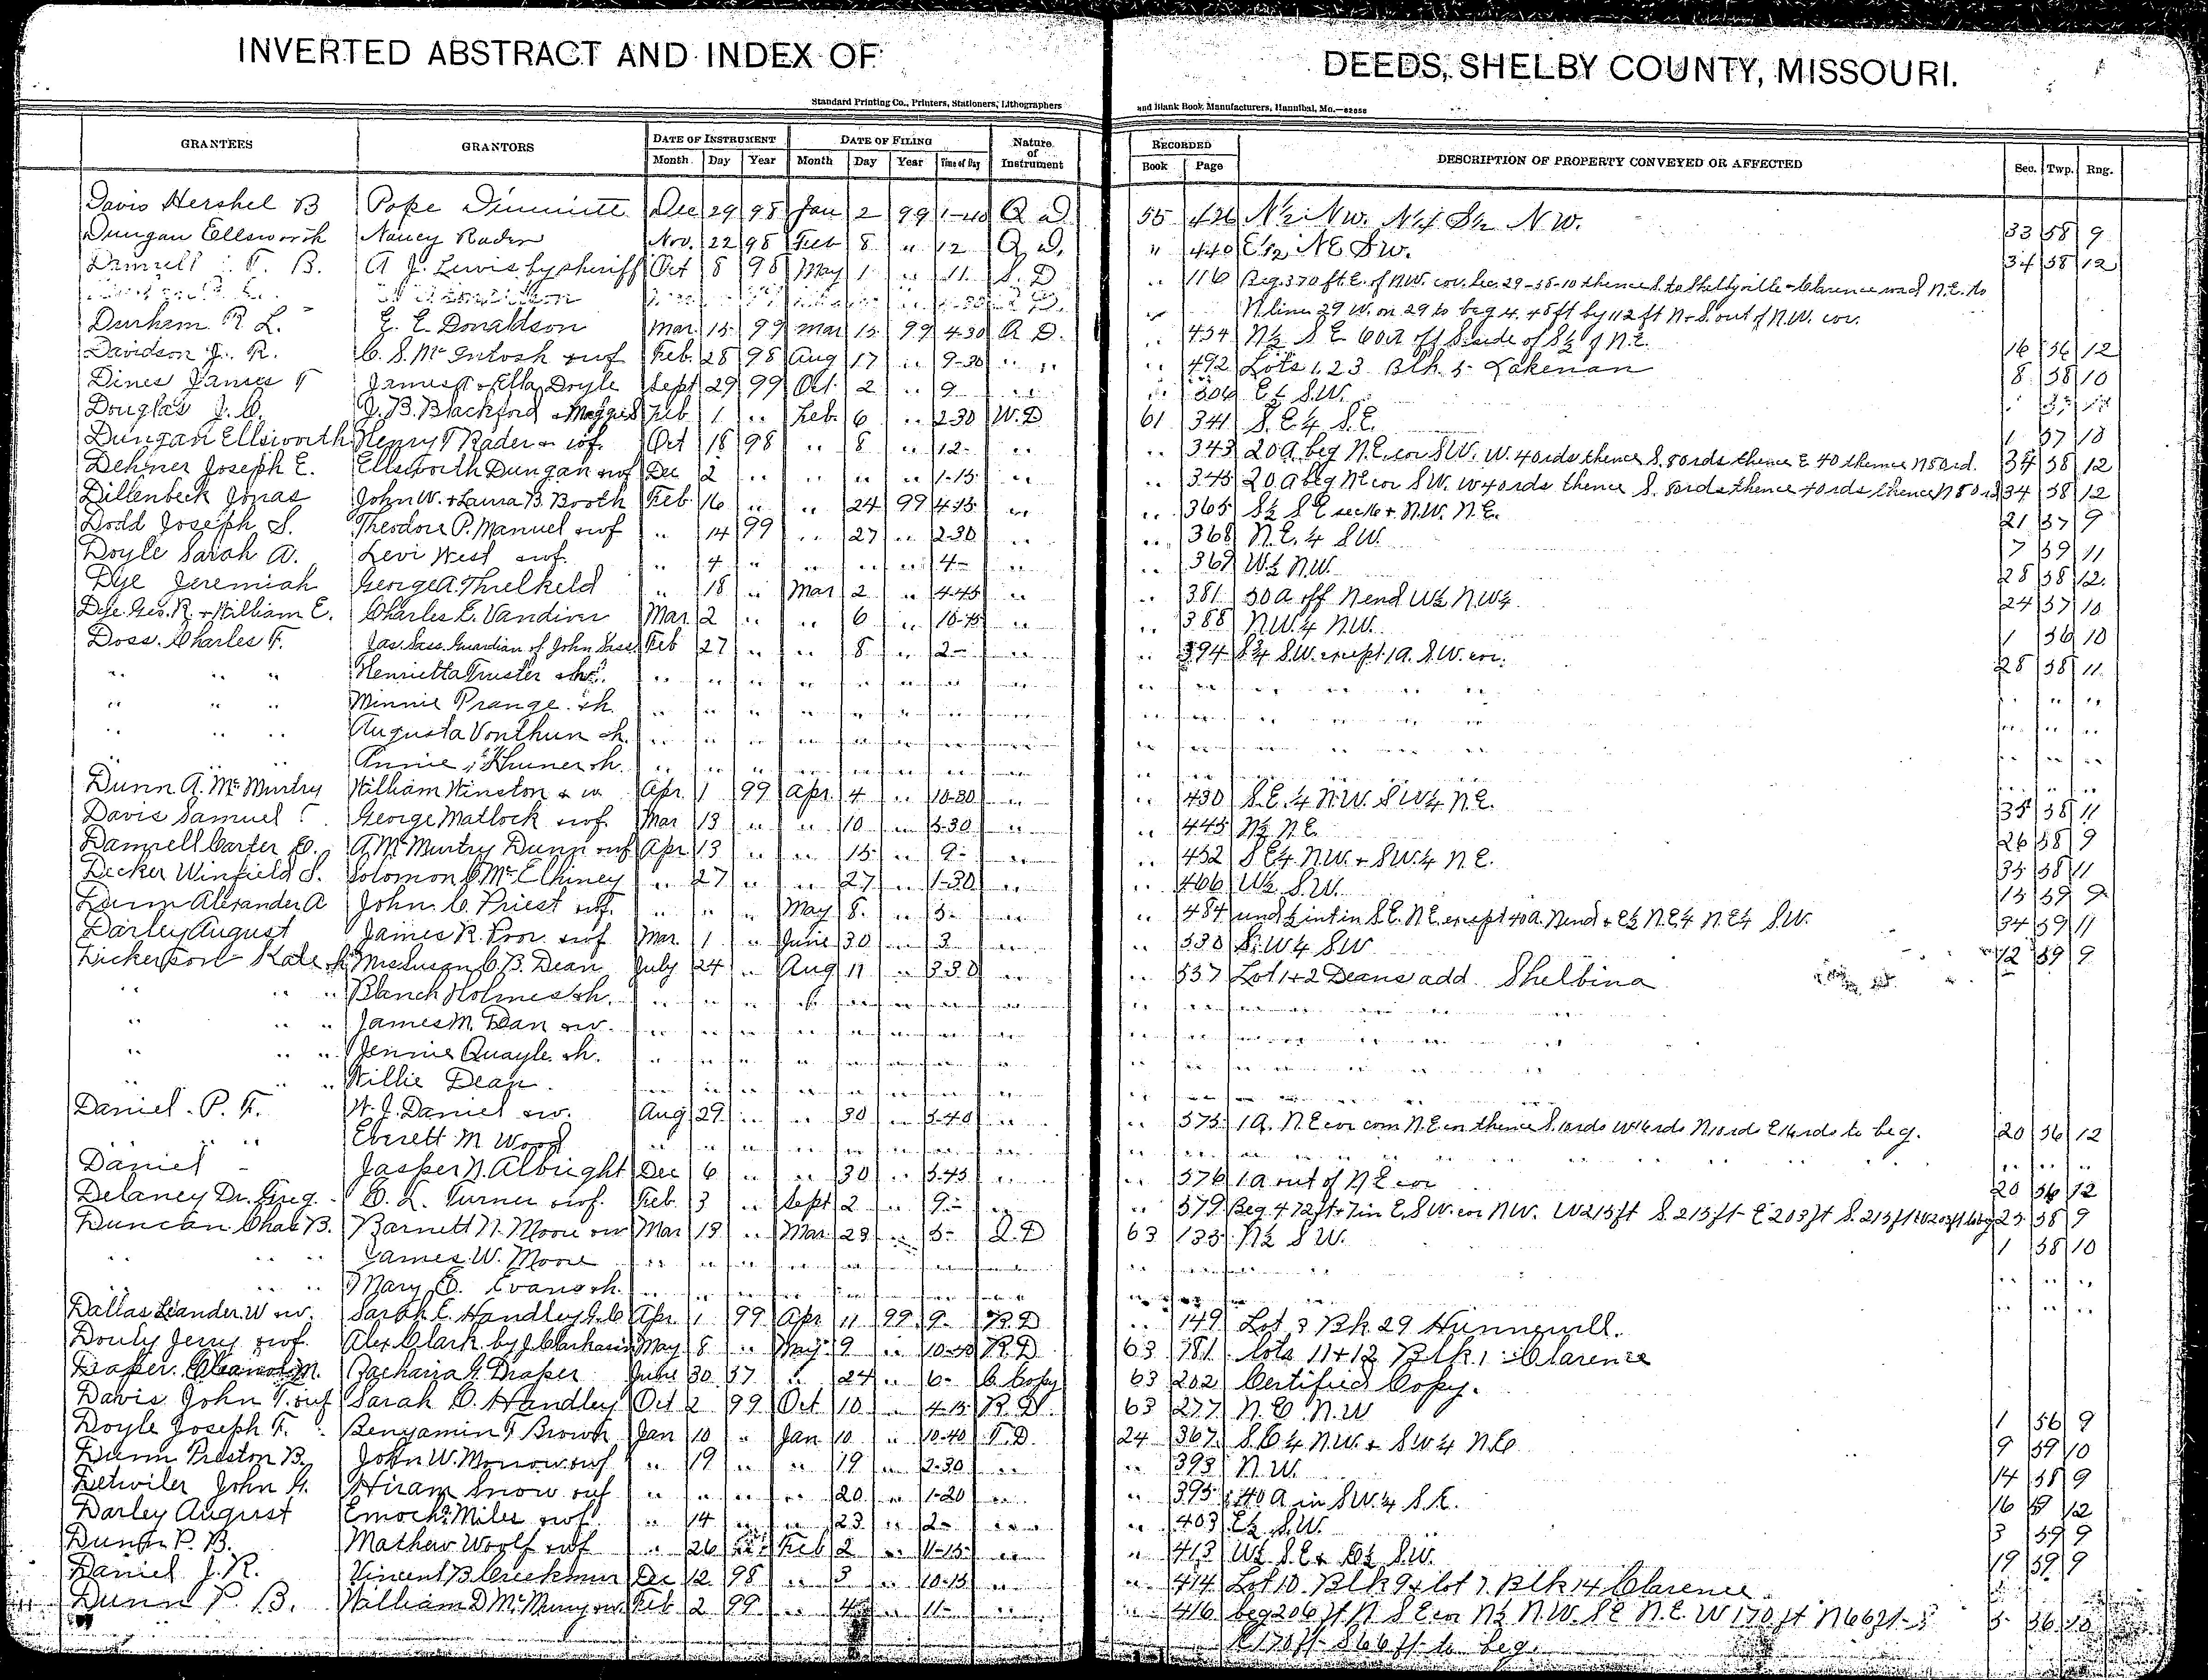 INVERTED ABSTRACT AND INDEX OF DEEDS, SHELBY COUNTY, MISSOURI.
Standard Printing Co., Printers, Stationers, Lithographers and Blank Book Manufacturers, Hannibal, Mo.
GRANTEES GRANTORS DATE OF INSTRUMENT DATE OF FILING Nature of Instrument RECORDED DESCRIPTION OF PROPERTY CONVEYED OR AFFECTED Sec. Twp. Rng.
Month Day Year Month Day Year Time of Day Book Page
Davis Hershel B Pope Dimmitt Dec 29 98 Jan 2 99 1-40 Q D 55 426 N½ NW. N½ S½ NW. 33 58 9
Dungan Ellsworth Nancy Rader Nov. 22 98 Feb 8 " 12 Q D. " 440 E½ NE SW. 34 58 12
Damrell T. B. A J. Lewis by sheriff Oct 8 98 May 1 .. 11 S. D .. 116 Beg. 370 ft. E. of N.W. cor. Sec. 29-58-10 thence S. to Shelbyville + Clarence road N.E. to
N line 29 W. on 29 to beg 4. 48 ft by 112 ft N+S. out of N.W. cor.
Durham R L. E. E. Donaldson Mar. 15 99 Mar 15 99 4-30 Q D. .. 454 N½ S E 60a off S. side of S½ of N.E. 16 56 12
Davidson J. R. C. S. McIntosh + wf Feb. 28 98 Aug 17 .. 9-30 .. .. 492 Lots 1, 2 3 Blk 5 Lakenan 8 58 10
Dines James T James T + Ella Doyle Sept 29 99 Oct 2 .. 9 .. .. 506 E½ S.W.
Douglas J. C. J. B. Blackford + Maggie Feb 1 .. Feb. 6 .. 2-30 W. D 61 341 S. E. 4 S. E. 1 57 10
Dungan Ellsworth Henry T Rader + wf. Oct 18 98 .. 8 .. 12- .. .. 343 20 a beg N.E. cor SW. W. 40 rds thence S. 80 rds thence E 40 thence N 80 rd. 34 58 12
Dehner Joseph E. Ellsworth Dungan + wf Dec 2 .. .. .. .. 1-15 .. .. 345 20 a beg NE cor SW. W 40 rds thence S. 80 rds thence 40 rds thence N 80 rd 34 58 12
Dillenbeck Jonas John W. + Laura B. Booth Feb. 16 .. 24 99 4-45 .. .. 365 S½ S E sec 16 + N.W. N.E. 21 57 9
Dodd Joseph S. Theodore P. Manuel + wf .. 14 99 .. 27 .. 2-30 .. .. 368 N. E. 4 SW. 7 59 11
Doyle Sarah A. Levi West + wf. .. 4 .. .. .. .. 4- .. .. 369 W½ N.W. 28 58 12.
Dye Jeremiah George A. Thielkeld .. 18 .. Mar 2 .. 4-45 .. .. 381 30 a off N end W½ NW4 24 57 10
Dye Geo. R. + William E. Charles E. Vandiver Mar 2 .. .. 6 .. 10-45 .. .. 388 N.W. 4 N.W. 1 56 10
Doss. Charles F. Jas. Sass Guardian of John Sass Feb 27 .. .. 8 .. 2- .. .. 394 S.W. except 1 a. S.W. cor. 28 58 11
.. .. .. Henrietta Truster + h. .. .. .. .. .. .. .. .. .. .. .. .. .. ..
.. .. .. Minnie Prange + h. .. .. .. .. .. .. .. .. .. .. .. .. .. ..
.. .. .. Augusta Vonthun + h. .. .. .. .. .. .. .. .. .. .. .. .. .. ..
.. .. .. Annie + h. .. .. .. .. .. .. .. .. .. .. .. .. .. ..
Dunn A. McMurtry William Winston + w Apr. 1 99 Apr. 4 .. 10-30 .. .. 430 S. E. 4 N.W. SW4 N.E. 35 58 11
Davis Samuel George Matlock + wf. Mar 13 .. .. 10 .. 3-30 .. .. 445 N½ N.E. 26 58 9
Damrell Carter A. McMurtry Dunn + wf Apr 13 .. .. 15 .. 9- .. .. 452 S E4 N.W. + SW.4 N.E. 35 58 11
Decker Winfield S. Solomon McElhiney .. 27 .. .. 27 .. 1-30 .. .. 466 W½ S.W. 15 59 9
Dunn Alexander A John C. Priest + wf. .. .. .. May 8. .. 3- .. .. 484 und ½ int in S.E. N.E. except 40 a. N end + E½ N.E4 N.E4 S.W. 34 59 11
Darley August James R. + wf Mar. 1 .. June 30 .. 3 .. .. 530 S.W 4 SW 12 59 9
Dickerson Kate Mrs Susan C. B. Dean July 24 .. Aug 11 .. 3-30 .. .. 537 Lot 1+2 Deans add. Shelbina
.. .. .. Blanch Holmes + h. .. .. .. .. .. .. .. .. .. .. ..
.. .. .. James M. Dean + w. .. .. .. .. .. .. .. .. .. .. ..
.. .. .. Jennie Quayle + h. .. .. .. .. .. .. .. .. .. .. ..
.. .. .. Willie Dean. .. .. .. .. .. .. .. .. .. .. ..
Daniel. P. F. W. J. Daniel + w. Aug 29 .. .. 30 .. 3-40 .. .. 575 1 a. N.E cor com N.E cor thence S. 10 rds W 16 rds N 10 rds E 16 rds to beg. 20 56 12
.. .. .. Everett M Wood .. .. .. .. .. .. .. .. .. .. .. .. .. ..
Daniel Jasper N. Albright Dec 6 .. .. 30 .. 3-45 .. .. 576 1 a out of N E cor 20 56 12
Delaney Dr. Greg. C. L. Turner + wf. Feb. 3 .. Sept 2 .. 9- .. .. 579 Beg. 472 ft + 7 in E, S.W. cor NW. W 215 ft S. 215 ft E 203 ft S. 215 ft 25 58 9
Duncan Chas B. Barnett N. Moore + w Mar 13 .. Mar. 23 .. 5- Q. D 63 133 N½ S W. 1 58 10
.. .. .. James W. Moore .. .. .. .. .. .. .. .. .. .. .. .. .. ..
.. .. .. Mary E. Evans + h. .. .. .. .. .. .. .. .. .. .. .. .. .. ..
Dallas Leander W + w. Sarah E. Handley Apr. 1 99 Apr 11 99 9- R. D .. 149 Lot 3 Bk 29 Hunnewell.
Douly Jerry + wf. Alex Clark by J. May 8 .. May 9 .. 10-40 R D 63 181 Lots 11+12 Blk 1 Clarence
Draper. M. Zacharia G. Draper June 30 57 .. 24 .. 6- C Copy 63 202 Certified Copy.
Davis John T. + wf Sarah E. Handley Oct 2 99 Oct 10 .. 4-15 R. D. 63 277 N. E. N.W 1 56 9
Doyle Joseph F. Benjamin F Brown Jan 10 .. Jan 10 .. 10-40 T. D. 24 367 S. E 4 N.W. + SW 4 N.E 9 59 10
Dunn Preston B. John W. Morrow + wf .. 19 .. .. 19 .. 2-30 .. .. 393 N.W. 14 58 9
Detwiler John G. Hiram Snow + wf .. .. .. .. 20 .. 1-20 .. .. 395 40 a in SW.4 S.E. 16 12
Darley August Enoch Miles + wf .. 14 .. .. 23 .. 2- .. .. 403 E½ S.W. 3 59 9
Dunn P. B. Mathew Woolf + wf .. 26 .. Feb 2 .. 11-15 .. .. 413 W½ S.E + E½ S.W. 19 59 9
Daniel J. R. Vincent B. Creekmur Dec 12 98 .. 3 .. 10-15 .. .. 414 Lot 10. Blk 9 + lot 7. Blk 14 Clarence
Dunn P. B. William D McMurry + w. Feb 2 99 .. 4 .. 11- .. .. 416 beg 206 ft N S E cor N½ N.W. SE N.E. W 170 ft N 66 ft 5 56 10
E 170 ft S 66 ft to beg.